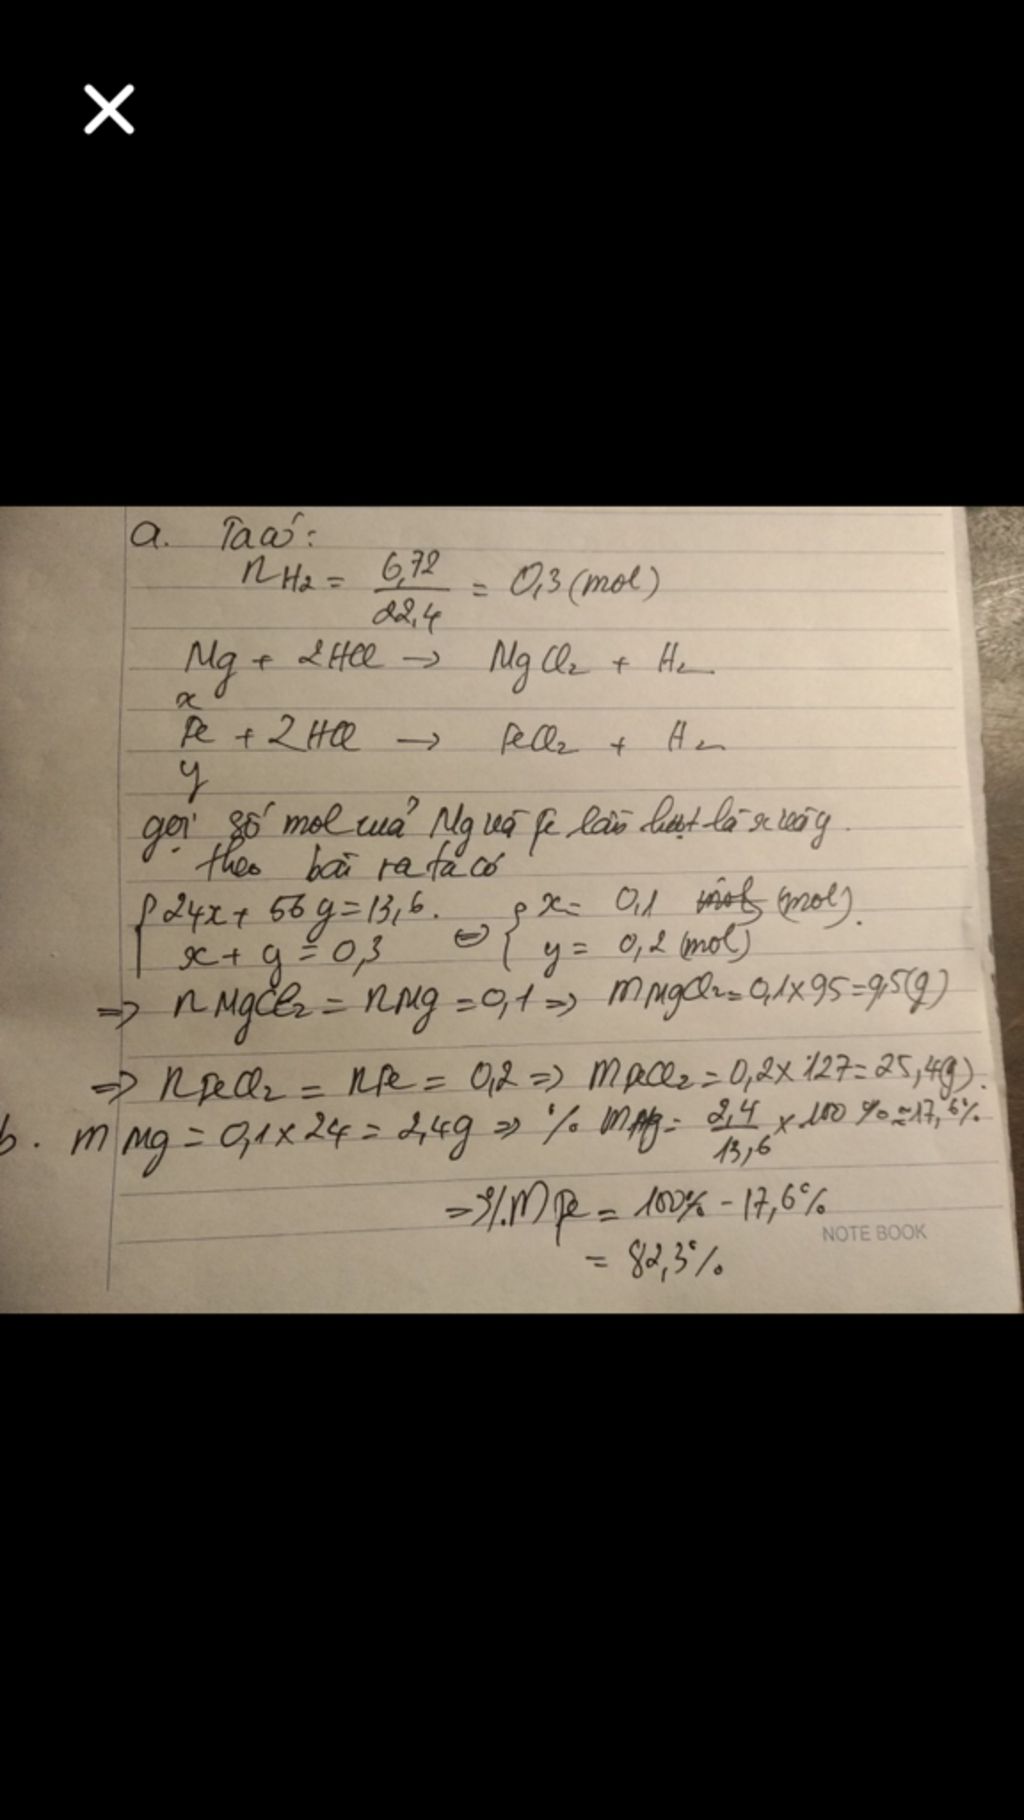 a. Ta có:
nH₂ = 6,72 / 22,4 = 0,3 (mol)
Mg + 2HCl → MgCl₂ + H₂
x
Fe + 2HCl → FeCl₂ + H₂
y
gọi số mol của Mg và Fe lần lượt là x và y.
theo bài ra ta có
{ 24x + 56y = 13,6. ⇔ { x = 0,1 (mol).
x + y = 0,3 y = 0,2 (mol)
=> nMgCl₂ = nMg = 0,1 => mMgCl₂ = 0,1 x 95 = 9,5(g)
=> nFeCl₂ = nFe = 0,2 => mFeCl₂ = 0,2 x 127 = 25,4g).
b. mMg = 0,1 x 24 = 2,4g => % mMg = 2,4 / 13,6 x 100 % ≈ 17,6%
=> %mFe = 100% - 17,6%
NOTE BOOK
= 82,3%